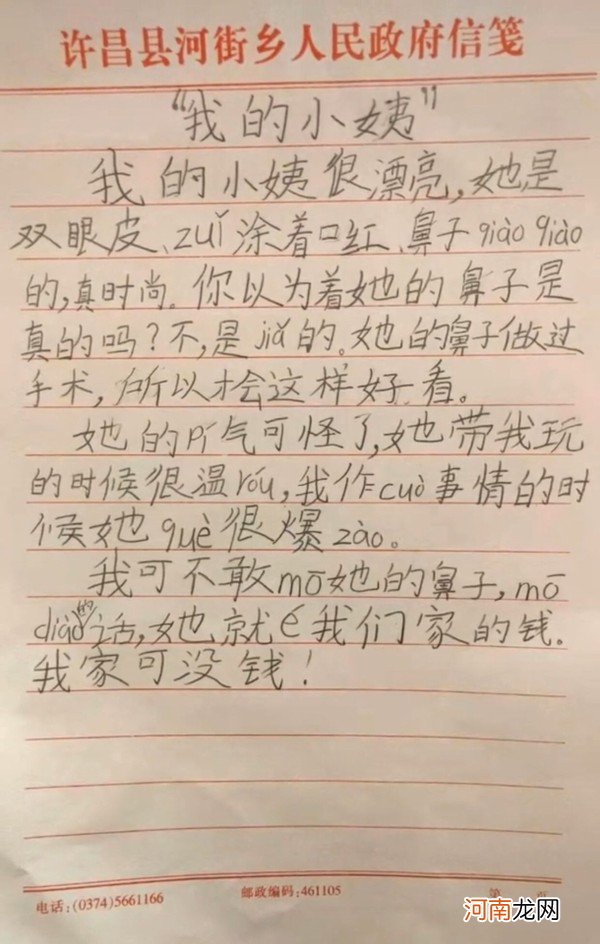 许昌县河街乡人民政府信笺
“我的小姨”
我的小姨很漂亮,她是
双眼皮、zuǐ涂着口红、鼻子qiào qiào
的,真时尚。你以为着她的鼻子是
真的吗?不,是jiǎ的。她的鼻子做过
手术,所以才会这样好看。
她的pí气可怪了,她带我玩
的时候很温róu,我作cuò事情的时
候她què很爆zào。
我可不敢mō她的鼻子,mō
diào的话,她就é我们家的钱.
我家可没钱!
电话:(0374)5661166
邮政编码:461105
第 页
河南龙网